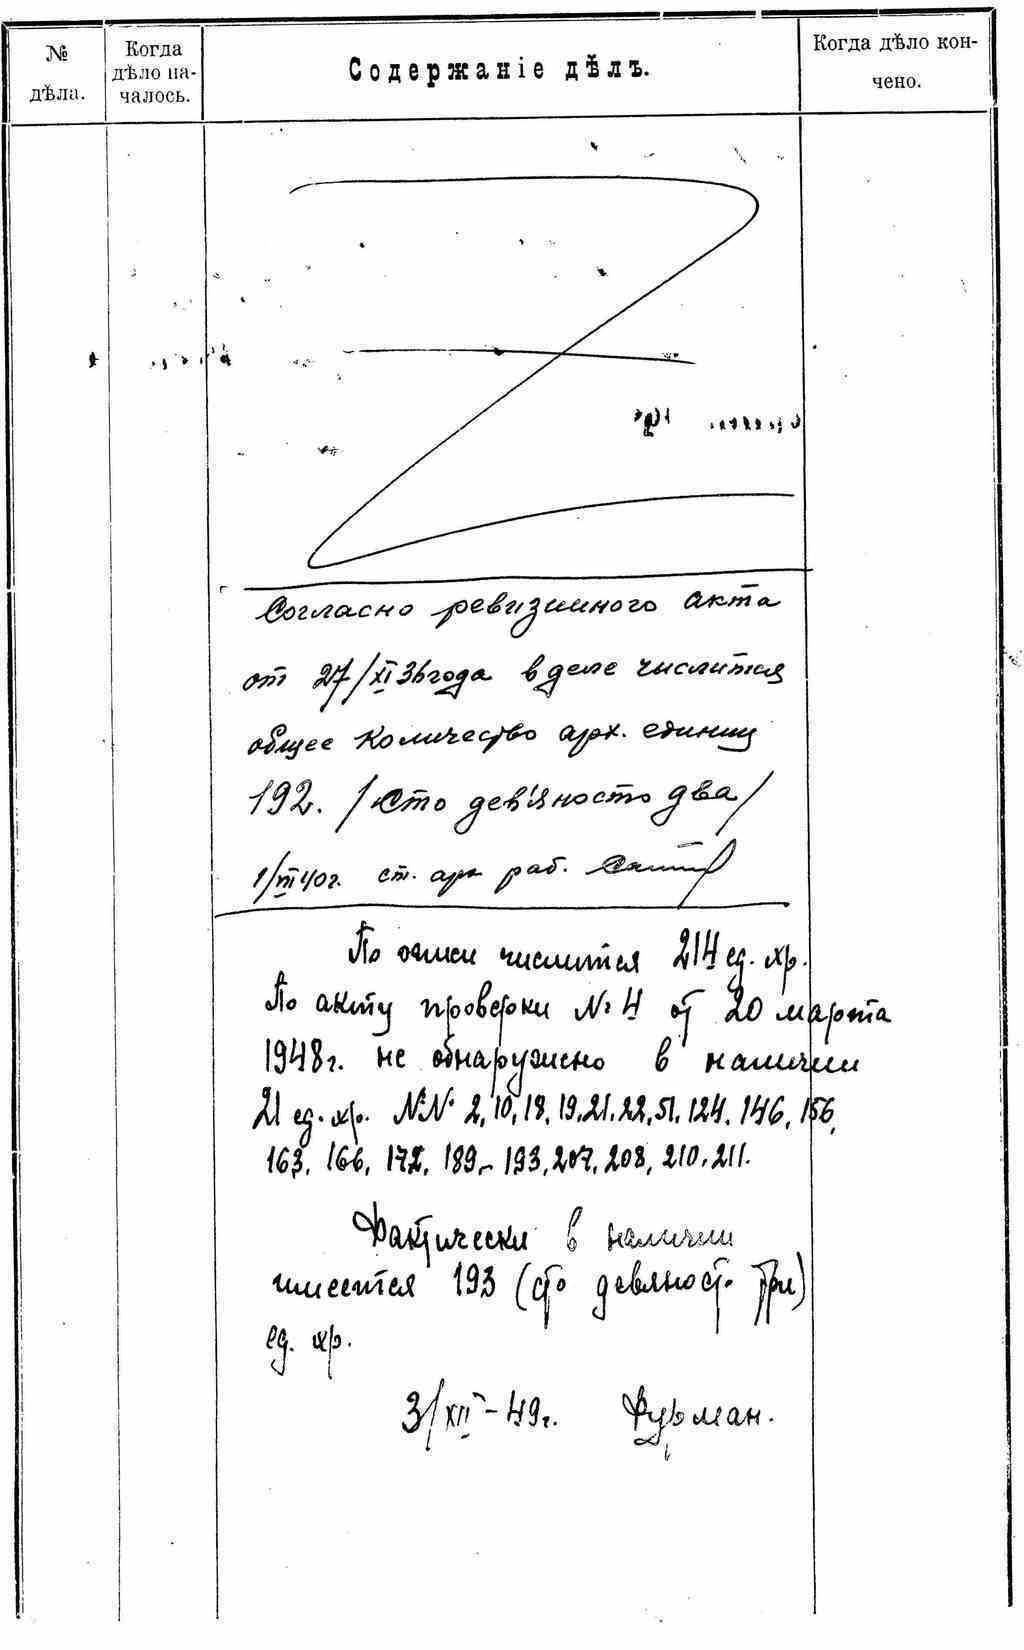 № дѣла.
Когда дѣло на- чалось.
Содержаніе дѣлъ.
Когда дѣло кон- чено.
Согласно ревизииного акта
от 27/XI 36 года в деле числится
общее количество арх. единиц
192. /Сто дев'яносто два/
1/III 40г. ст. арх. раб.
По описи числится 214 ед. хр.
По акту проверки № 4 от 20 марта
1948г. не обнаружено в наличии
21 ед. хр. №№ 2, 10, 18, 19, 21, 22, 51, 124, 146, 156,
163, 166, 172, 189-193, 207, 208, 210, 211.
Фактически в наличии
имеется 193 (сто девяносто три)
ед. хр.
3/XII-49г. Фурман.